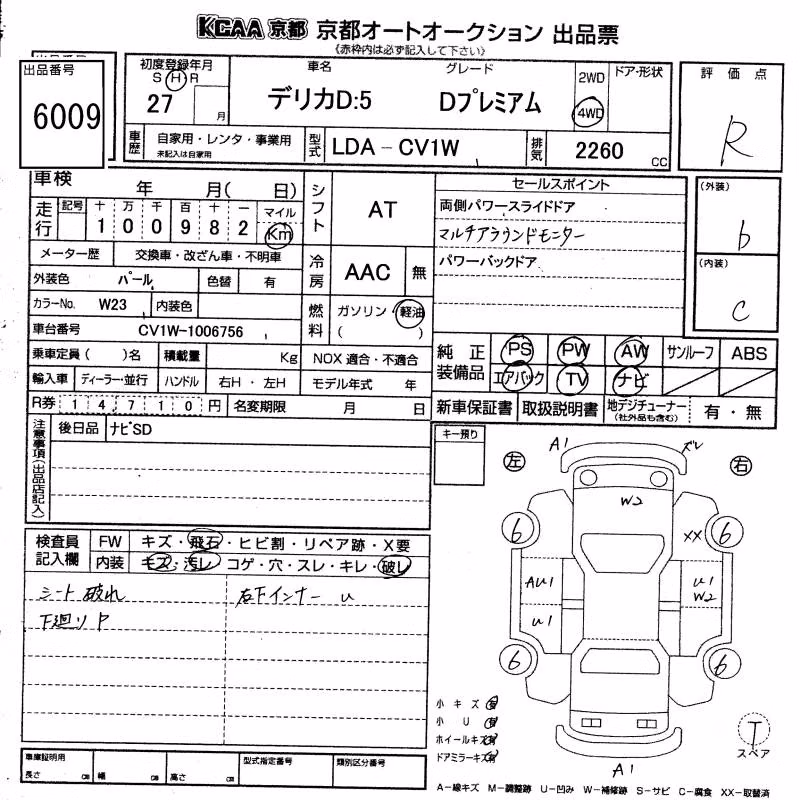 KCAA 京都 京都オートオークション 出品票
《赤枠内は必ず記入して下さい》
出品番号
6009
初度登録年月
S H R
27
月
車名
デリカD:5
グレード
Dプレミアム
2WD
4WD
ドア・形状
評価点
R
車歴
自家用・レンタ・事業用
未記入は自家用
型式
LDA-CV1W
排気
2260 CC
車検 年 月( 日)
走行
記号 十 万 千 百 十 一 マイル
1 0 0 9 8 2 Km
シフト
AT
セールスポイント
両側パワースライドドア
マルチアラウンドモニター
パワーバックドア
(外装)
b
(内装)
C
メーター歴 交換車・改ざん車・不明車
冷房
AAC 無
外装色 パール 色替 有
カラーNo. W23 内装色
燃料
ガソリン・軽油
( )
車台番号 CV1W-1006756
乗車定員( )名 積載量 Kg
NOX 適合・不適合
輸入車 ディーラー・並行 ハンドル 右H・左H モデル年式 年
R券 1 4,7 1 0 円 名変期限 月 日
純正装備品
PS PW AW サンルーフ ABS
エアバック TV ナビ
新車保証書 取扱説明書 地デジチューナー(社外品も含む) 有・無
注意事項(出品店記入)
後日品 ナビSD
キー預り
左
右
A1
ズレ
W2
6
6
XX
AU1
U1
W2
U1
6
6
A1
T
スペア
検査員記入欄
FW キズ・飛石・ヒビ割・リペア跡・X要
内装 キズ・汚レ・コゲ・穴・スレ・キレ・破レ
シート破れ
右下インナー U
下廻りP
小キズ 有
小U 有
ホイールキズ 有
ドアミラーキズ 有
車庫証明用
長さ cm 幅 cm 高さ cm
型式指定番号
類別区分番号
A-線キズ M-調整跡 U-凹み W-補修跡 S-サビ C-腐食 XX-取替済